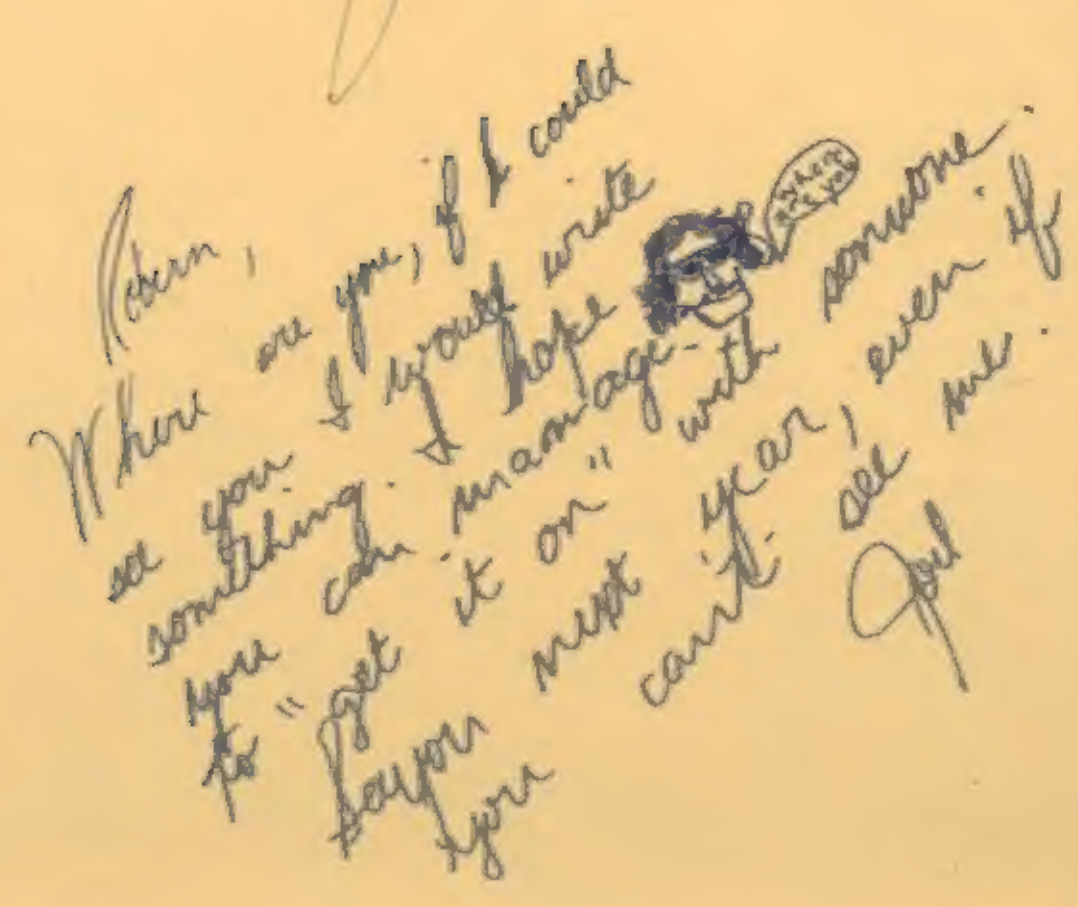 Robin,
Where are you, if I could
see you I would write
something. I hope
where
are you
you can manage
to "get it on" with someone.
next year, even if
you can't see me.
Joel